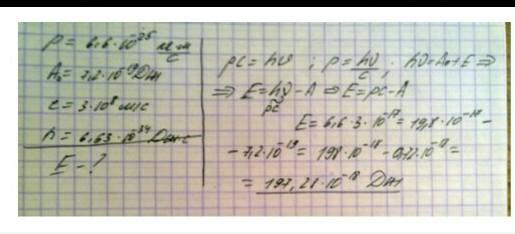 p = 6,6·10⁻²⁵ кг·м/с
A₀ = 7,2·10⁻¹⁹ Дж
c = 3·10⁸ м/с
h = 6,63·10³⁴ Дж·с
E - ?
pc = hν ; p = hν/c ; hν = A₀ + E ⇒
⇒ E = hν - A ⇒ E = pc - A
pc
E = 6,6·3·10⁻¹⁷ = 19,8·10⁻¹⁸ -
- 7,2·10⁻¹⁹ = 198·10⁻¹⁸ - 0,72·10⁻¹⁸ =
= 197,28·10⁻¹⁸ Дж